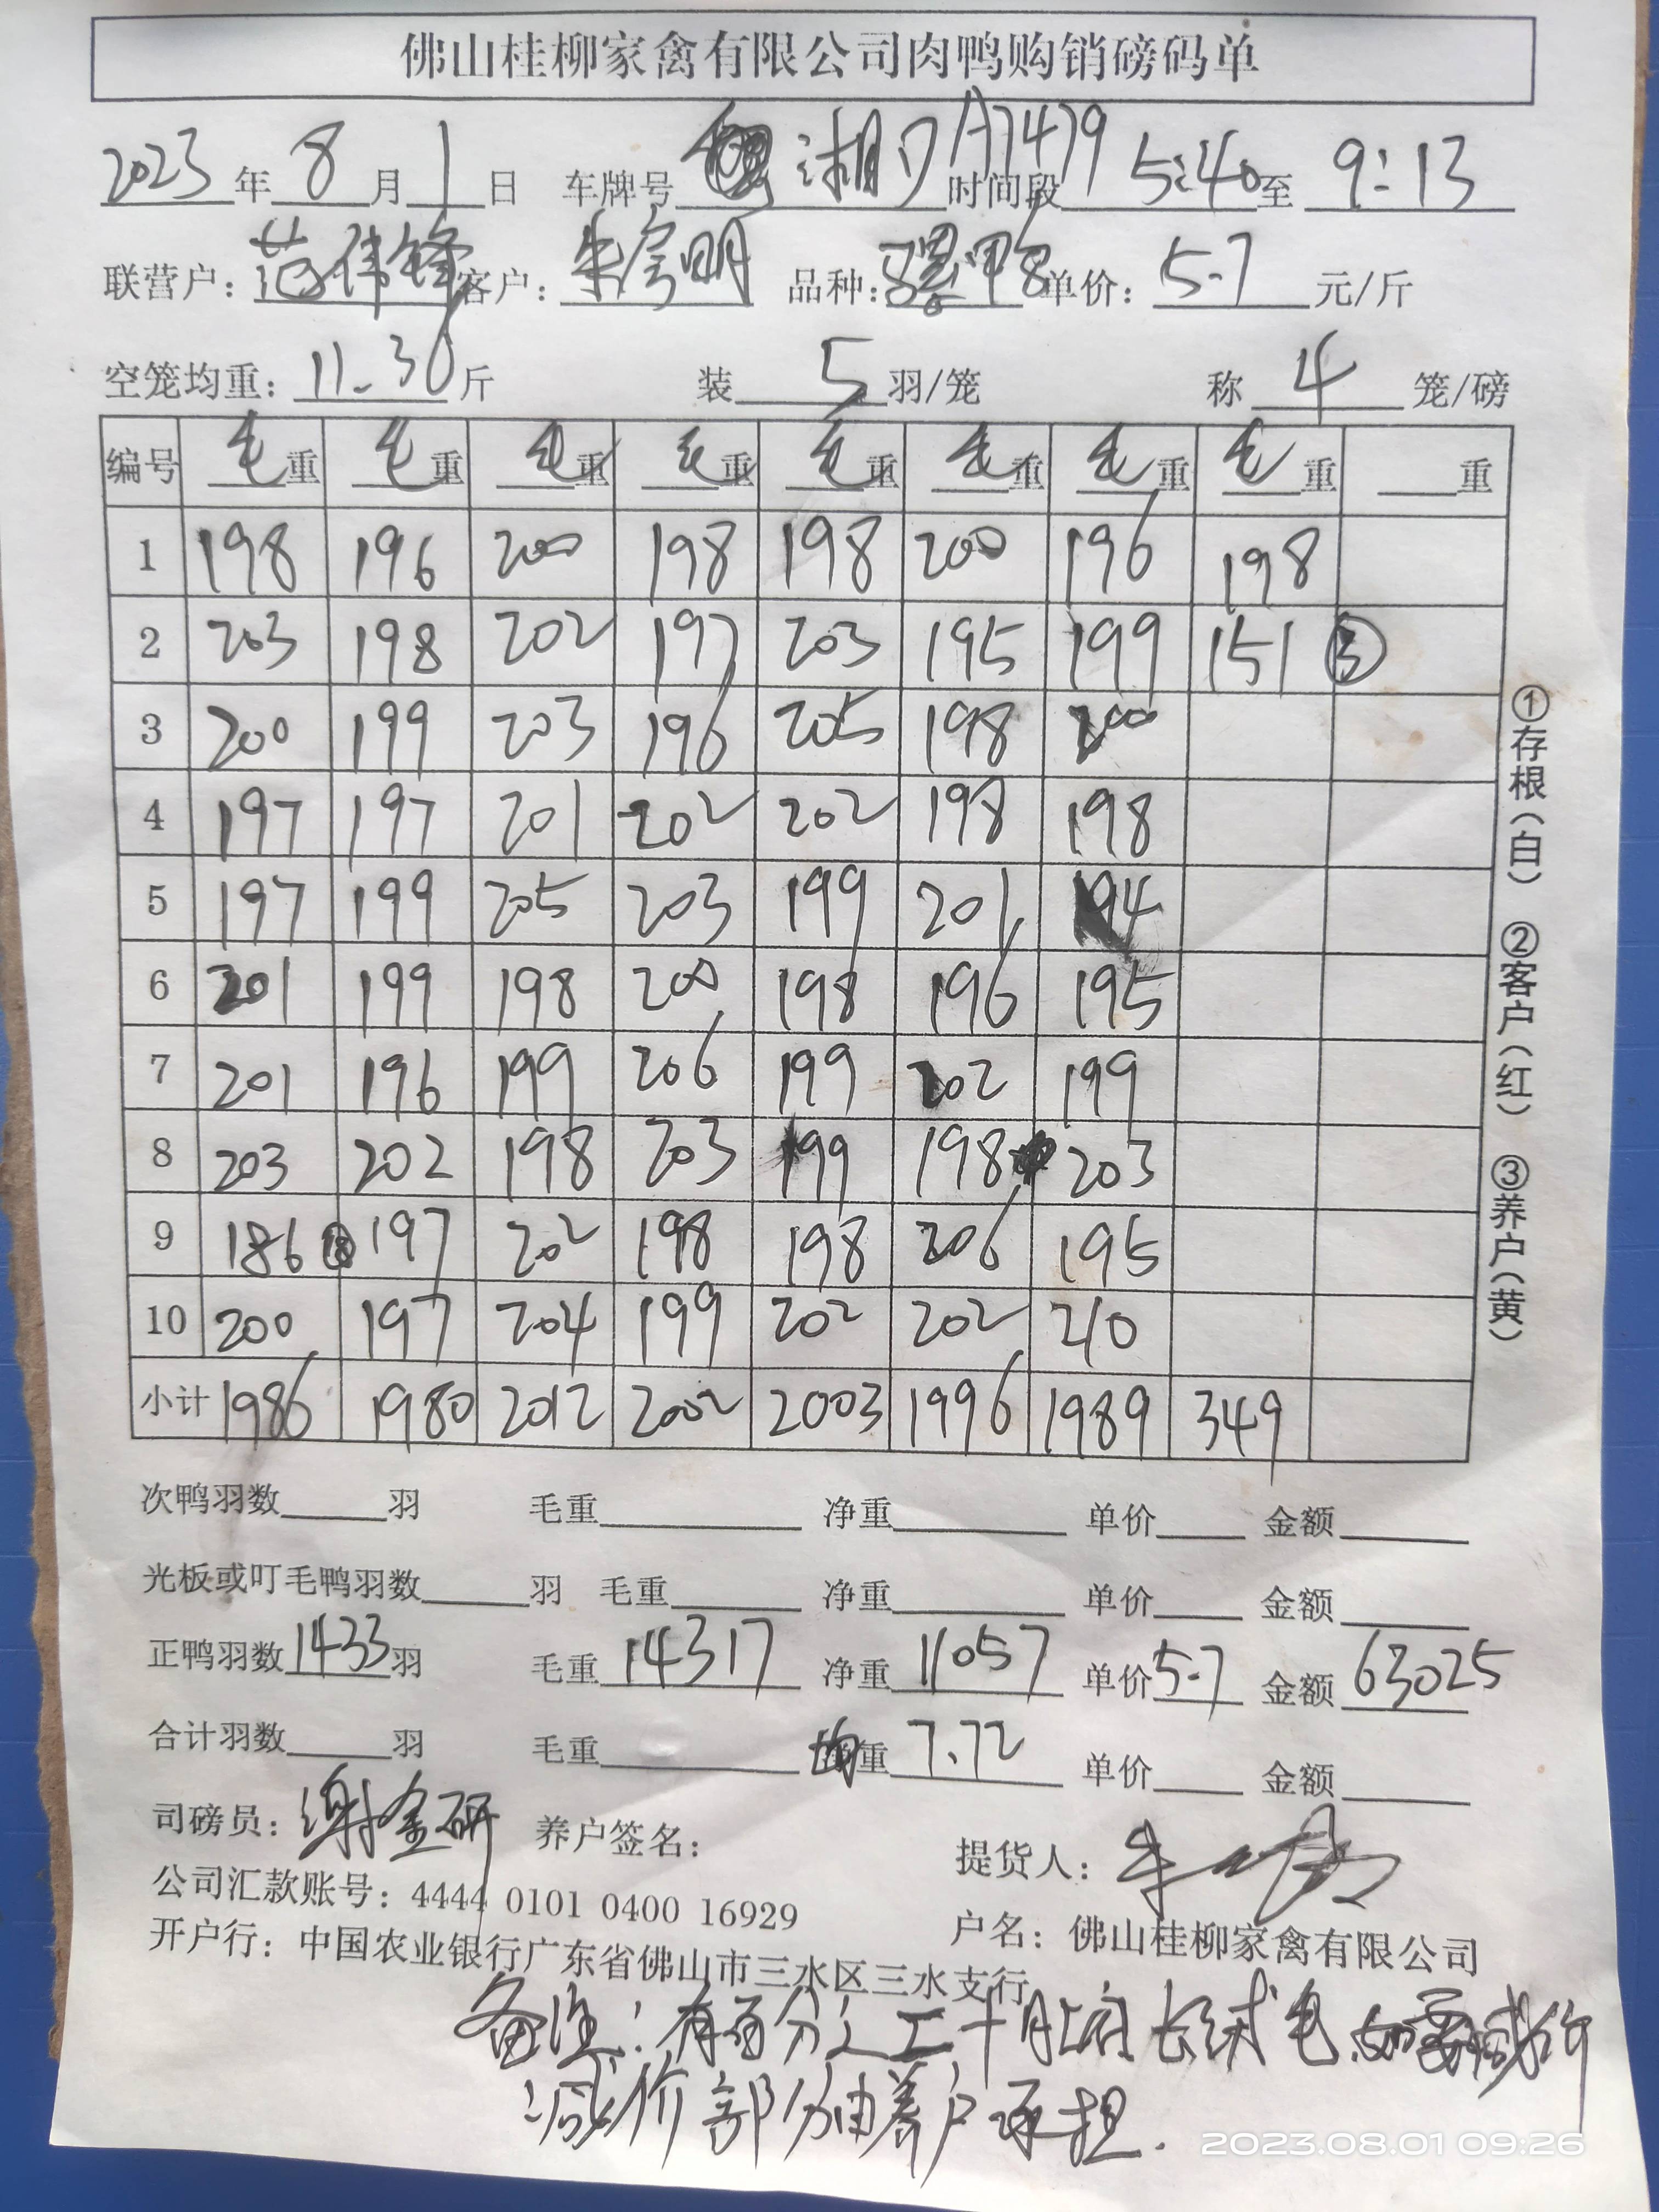 佛山桂柳家禽有限公司肉鸭购销磅码单
2023年8月1日 车牌号 湘DA7479 时间段 5:40至 9:13
联营户：范伟锋 客户：朱 明 品种： 鸭 单价：5.7元/斤
空笼均重：11.30斤 装5羽/笼 称4笼/磅
编号 毛重 毛重 毛重 毛重 毛重 毛重 毛重 毛重 重
1 198 196 200 198 198 200 196 198
2 203 198 202 197 203 195 199 151 ③
3 200 199 203 196 205 198 200
4 197 197 201 202 202 198 198
5 197 199 205 203 199 201 194
6 201 199 198 200 198 196 195
7 201 196 199 206 199 202 199
8 203 202 198 203 199 198 203
9 186 ⑱ 197 202 198 198 206 195
10 200 197 204 199 202 202 210
小计 1986 1980 2012 2002 2003 1996 1989 349
①存根（白） ②客户（红） ③养户（黄）
次鸭羽数 羽 毛重 净重 单价 金额
光板或叮毛鸭羽数 羽 毛重 净重 单价 金额
正鸭羽数1433羽 毛重14317 净重11057 单价5.7 金额63025
合计羽数 羽 毛重 均重7.72 单价 金额
司磅员：谢金研 养户签名： 提货人：
公司汇款账号：4444 0101 0400 16929 户名：佛山桂柳家禽有限公司
开户行：中国农业银行广东省佛山市三水区三水支行
备注：有百分之二十 长绒毛.如要减价
减价部分由养户承担.
2023.08.01 09:26